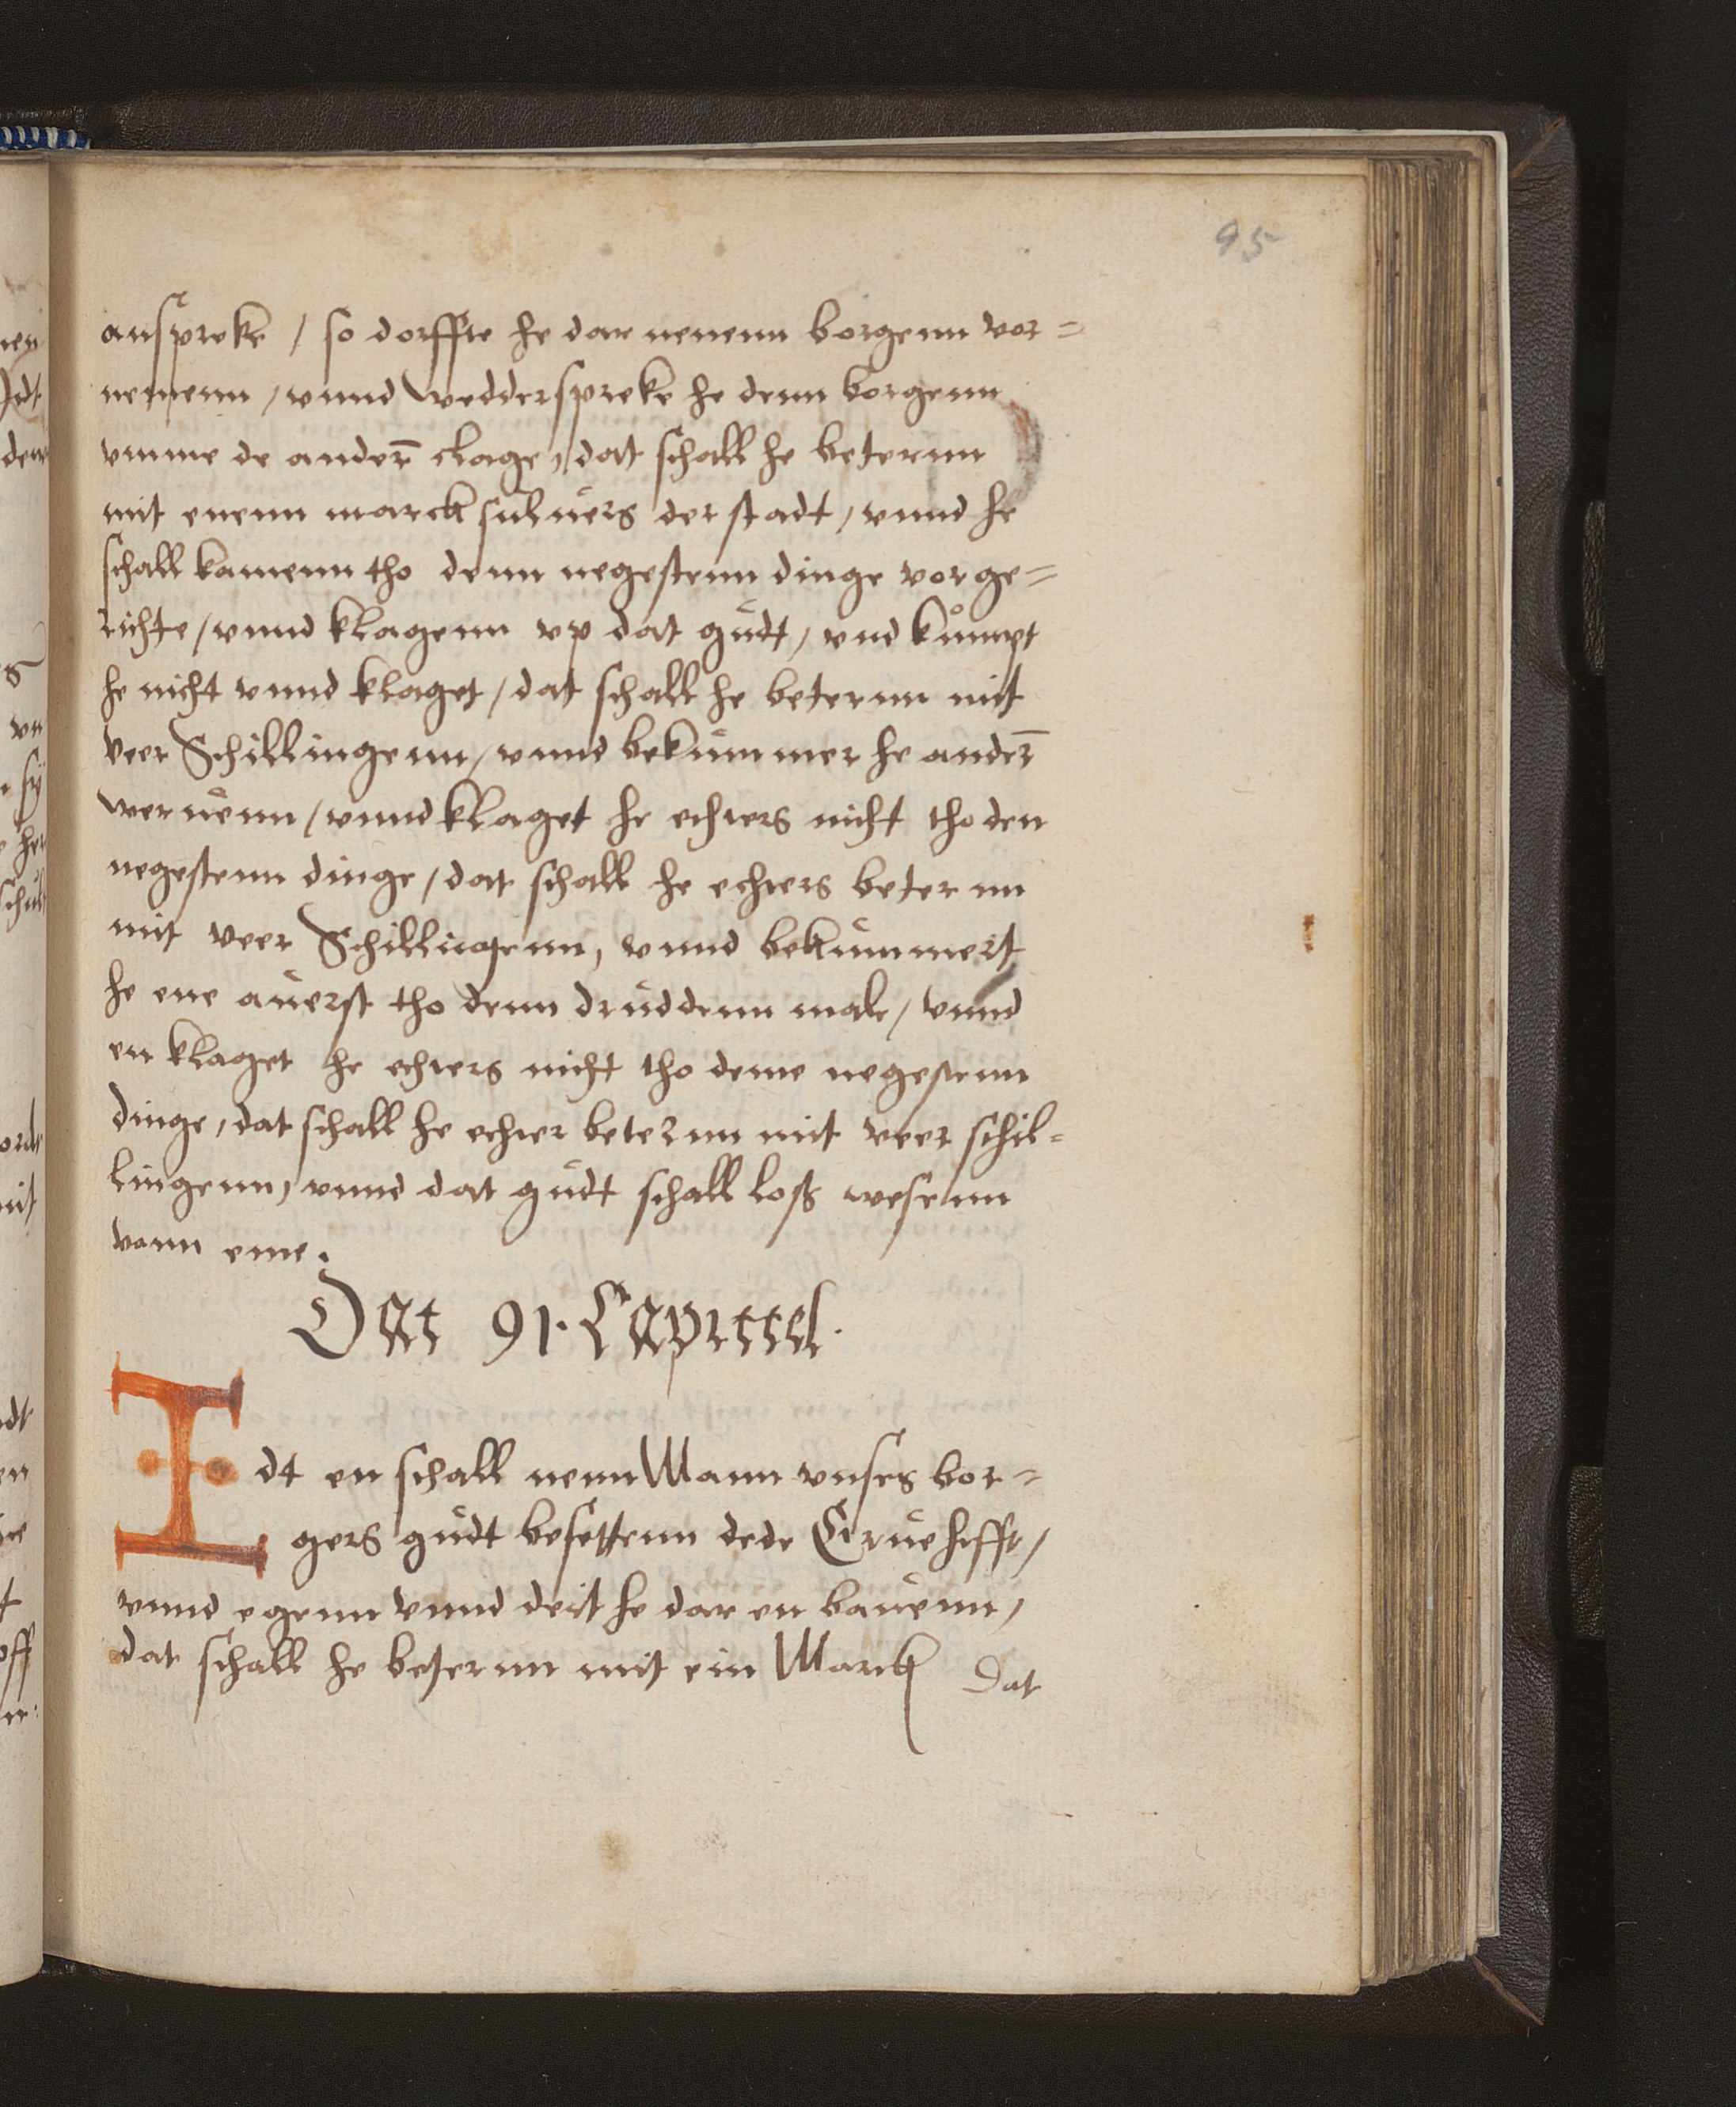 95
anspreke / so dorffte he dar nenenn borgenn vor=
nemenn / vnnd weddersprekе he denn borgenn
vmme de anderr̄ clage, dat schall he beternn
mit enenn marck suluers der stadt, vnnd he
schall kamenn tho denn negestenn dinge vor ge=
richte / vnnd klagenn vp dat gudt, vnd kumpt
he nicht vnnd klaget / dat schall he beternn mit
veer Schillingenn, vnnd bekummer he ander̄
weruenn / vnnd klaget he echters nicht tho den
negestenn dinge / dat schall he echters beternn
mit veer Schillingenn, vnnd bekummert
he ene auerst tho denn druddenn male, vnnd
en klaget he echters nicht tho deme negestenn
dinge, dat schall he echter beternn mit veer schil=
lingenn, vnnd dat gudt schall loß wesenn
vann eme.
Dat 91. Capittel.
Idt en schall nenn Mann vnses bor=
gers gudt besettenn dede Erue hefft,
vnnd egenn vnnd deit he dar en bauenn,
dat schall he beternn mit ein Marck
Dat